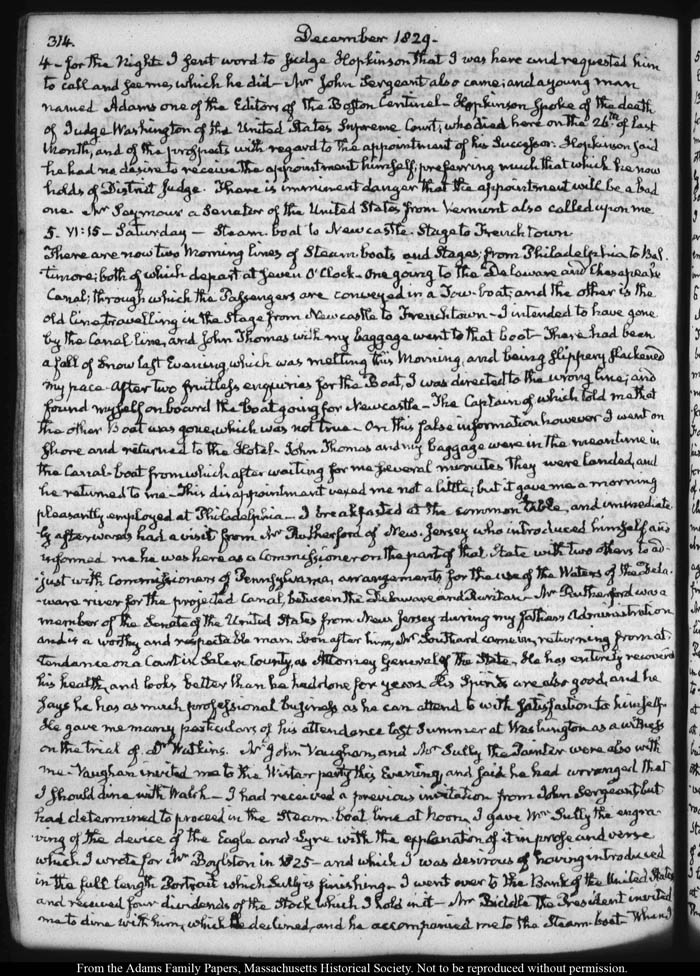 314. December 1829.
4 - for the Night. I sent word to Judge Hopkinson that I was here and requested him
to call and see me, which he did - Mr John Sergeant also came; and a young man
named Adams one of the Editors of the Boston Centinel - Hopkinson spoke of the death
of Judge Washington of the United States Supreme Court, who died here on the 26th of last
Month, and of the prospects with regard to the appointment of his Successor. Hopkinson said
he had no desire to receive the appointment himself; preferring much that which he now
holds of District Judge. There is imminent danger that the appointment will be a bad
one. Mr Seymour a Senator of the United States from Vermont also called upon me
5. VI:15 - Saturday - Steam-boat to New castle. Stage to French town
There are now two Morning lines of Steam boats and Stages, from Philadelphia to Bal-
timore; both of which depart at seven O'Clock - One going to the Delaware and Chesapeake
Canal; through which the Passengers are conveyed in a Tow-boat; and the other is the
old line travelling in the Stage from Newcastle to Frenchtown - I intended to have gone
by the Canal line, and John Thomas with my baggage went to that boat - There had been
a fall of Snow last Evening which was melting this Morning, and being slippery slackened
my pace. After two fruitless enquiries for the Boat, I was directed to the wrong line; and
found myself on board the boat going for Newcastle - The Captain of which told me that
the other Boat was gone, which was not true - On this false information however I went on
shore and returned to the Hotel. John Thomas and my baggage were in the meantime in
the Canal-boat from which after waiting for me several minutes they were landed, and
he returned to me - This disappointment vexed me not a little; but it gave me a morning
pleasantly employed at Philadelphia - I breakfasted at the common table, and immediate-
ly afterwards had a visit from Mr Rutherford of New-Jersey who introduced himself and
informed me he was here as a Commissioner on the part of that State with two others to ad-
-just with Commissioners of Pennsylvania, arrangements for the use of the Waters of the Dela-
-ware river for the projected Canal, between the Delaware and Raritan - Mr Rutherford was a
member of the Senate of the United States from New Jersey during my father's Administration
and is a worthy and respectable man. Soon after him, Mr Southard came in, returning from at-
tendance on a Court in Salem County, as Attorney General of the State. He has entirely recovered
his health, and looks better than he had done for years. His Spirits are also good, and he
says he has as much professional business as he can attend to with satisfaction to himself.
He gave me many particulars of his attendance last Summer at Washington as a witness
on the trial of Dr Watkins. Mr John Vaughan, and Mr Sully the Painter were also with
me - Vaughan invited me to the Wistar party this Evening, and said he had arranged that
I should dine with Walsh - I had received a previous invitation from John Sergeant but
had determined to proceed in the Steam-boat line at Noon. I gave Mr Sully the engra-
ving of the device of the Eagle and Lyre with the explanation of it in prose and verse
which I wrote for Mr Boylston in 1825 - and which I was desirous of having introduced
in the full length Portrait which Sully is finishing - I went over to the Bank of the United States
and received four dividends of the Stock which I hold in it - Mr Biddle the President invited
me to dine with him, which he declined, and he accompanied me to the Steam-boat When I
From the Adams Family Papers, Massachusetts Historical Society. Not to be reproduced without permission.